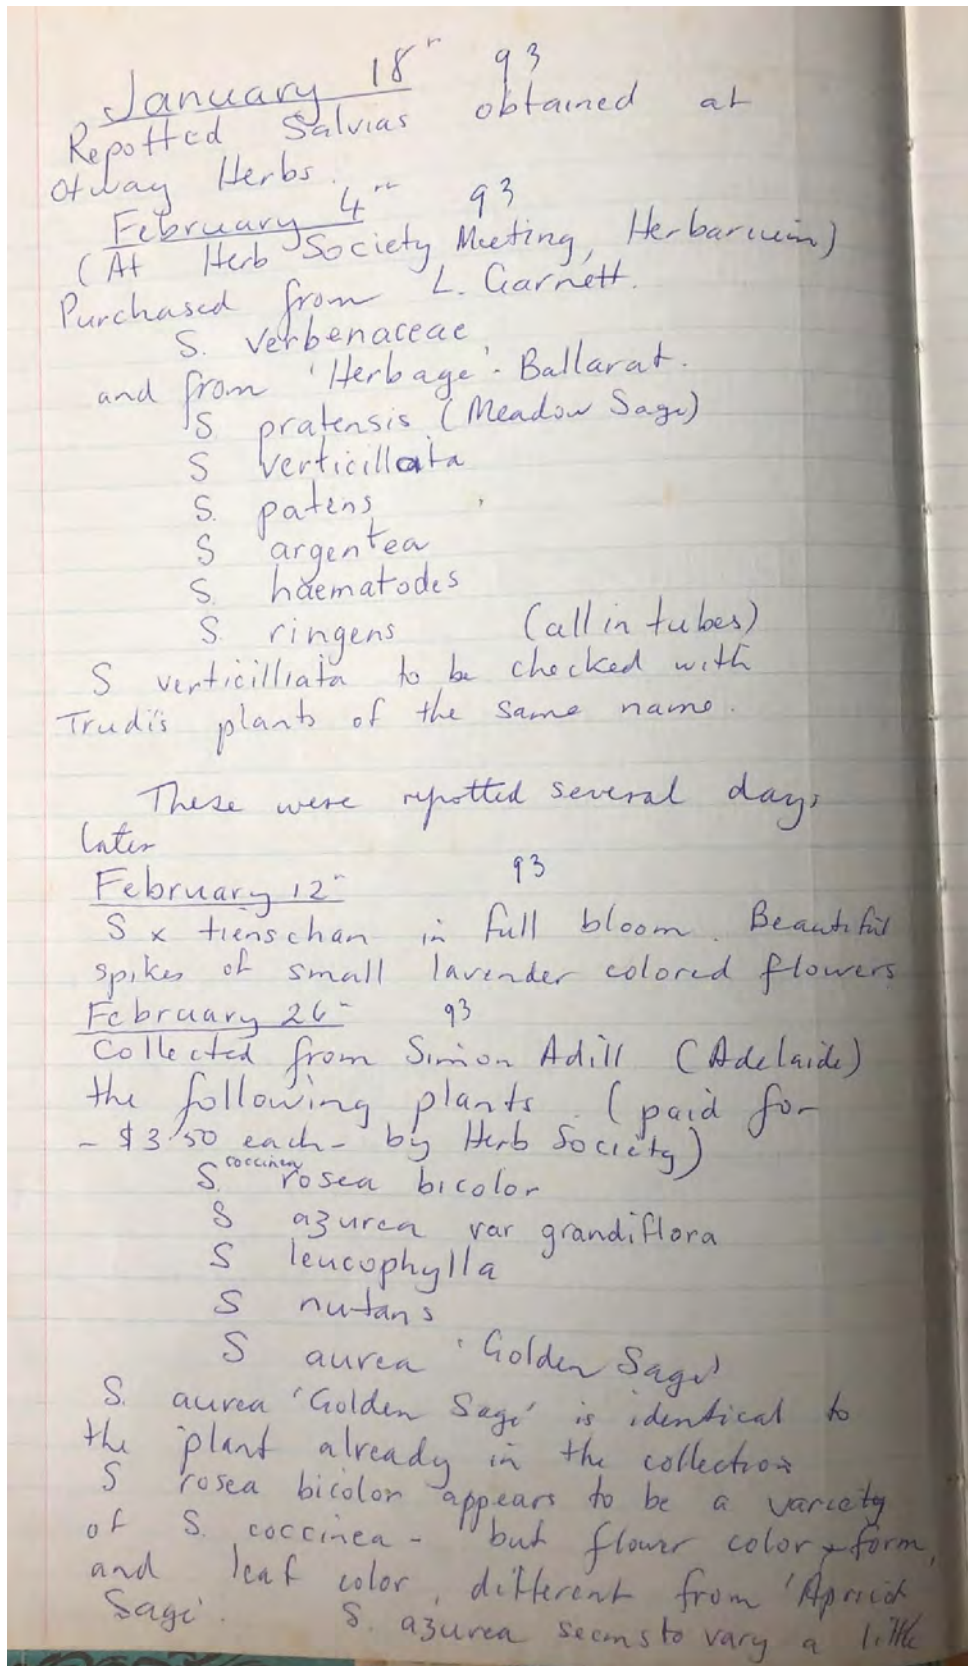 January 18th 93
Repotted Salvias obtained at
Otway Herbs.
February 4th 93
(At Herb Society Meeting, Herbarium)
Purchased from L. Garnett.
S. verbenaceae
and from 'Herbage' - Ballarat.
S pratensis (Meadow Sage)
S verticillata
S. patens
S argentea
S. haematodes
S. ringens (all in tubes)
S verticilliata to be checked with
Trudi's plants of the same name.
These were repotted several days
later
February 12th 93
S x tienschan in full bloom. Beautiful
spikes of small lavender colored flowers
February 26th 93
Collected from Simon Adill (Adelaide)
the following plants. (paid for
- $3.50 each - by Herb Society)
S. coccinea rosea bicolor
S azurea var grandiflora
S leucophylla
S nutans
S aurea 'Golden Sage'
S. aurea 'Golden Sage' is identical to
the plant already in the collection
S rosea bicolor appears to be a variety
of S. coccinea - but flower color & form,
and leaf color, different from 'Apricot
Sage'. S. azurea seems to vary a little